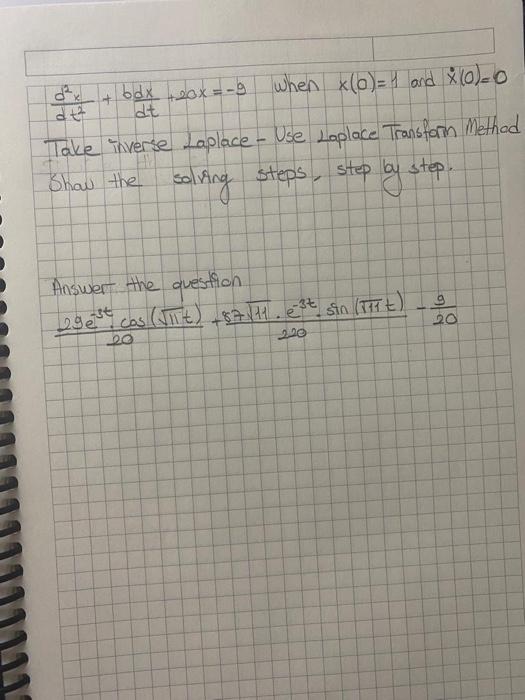 d²x/dt² + 6dx/dt + 20x = -9 when x(0)=1 and ẋ(0)=0
Take inverse Laplace - Use Laplace Transform Method
Show the solving steps, step by step.
Answer the question
29e^-3t. cos(√11t)/20 + 87√11 . e^-3t. sin(√11 t)/220 - 9/20